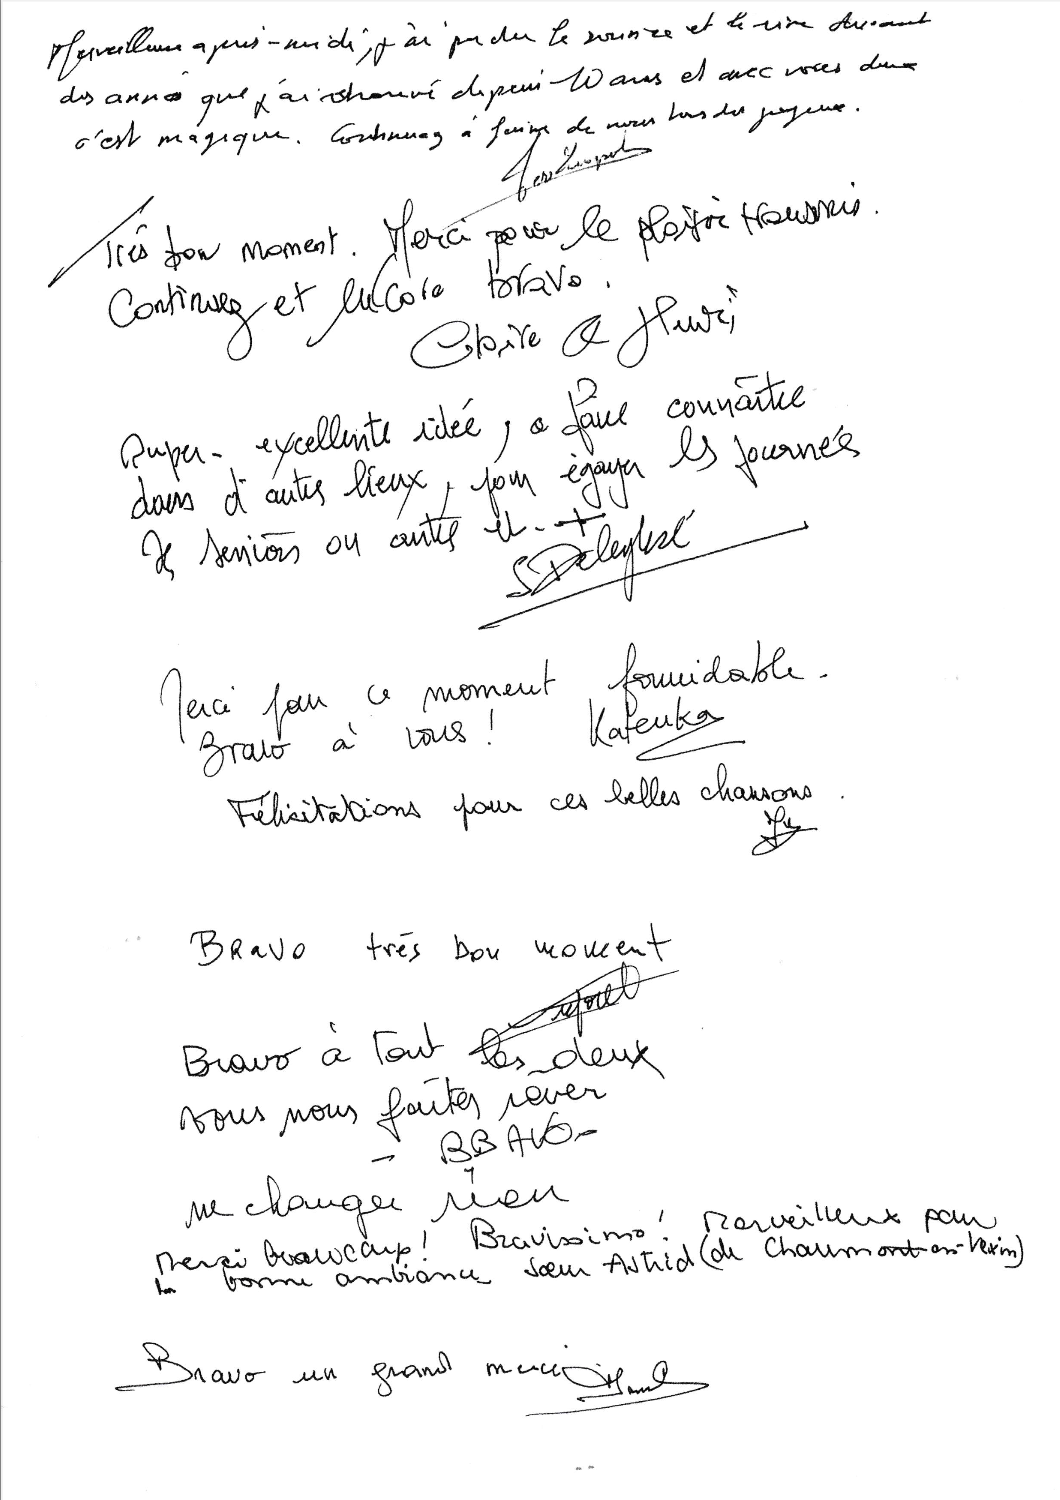 Merveilleux après-midi, j'ai perdu le sourire et le rire durant
des années que j'ai retrouvé depuis 10 ans et avec vous deux
c'est magique. Continuez à faire de nous tous des joyeux.
Très bon moment. Merci pour le plaisir transmis.
Continuez et encore bravo.
Claire & Henri
Super - excellente idée, à faire connaître
dans d'autres lieux, pour égayer les journées
de seniors ou autres et - +
Merci pour ce moment formidable.
Bravo à vous ! Katenka
Félicitations pour ces belles chansons.
BRAVO très bon moment
Bravo à tout les deux
vous nous faites rever
- BBAVO -
ne changer rien
Merci beaucoup ! Bravissimo ! Merveilleux pour
la bonne ambiance Sœur Astrid (de Chaumont-en-Vexin)
Bravo un grand merci